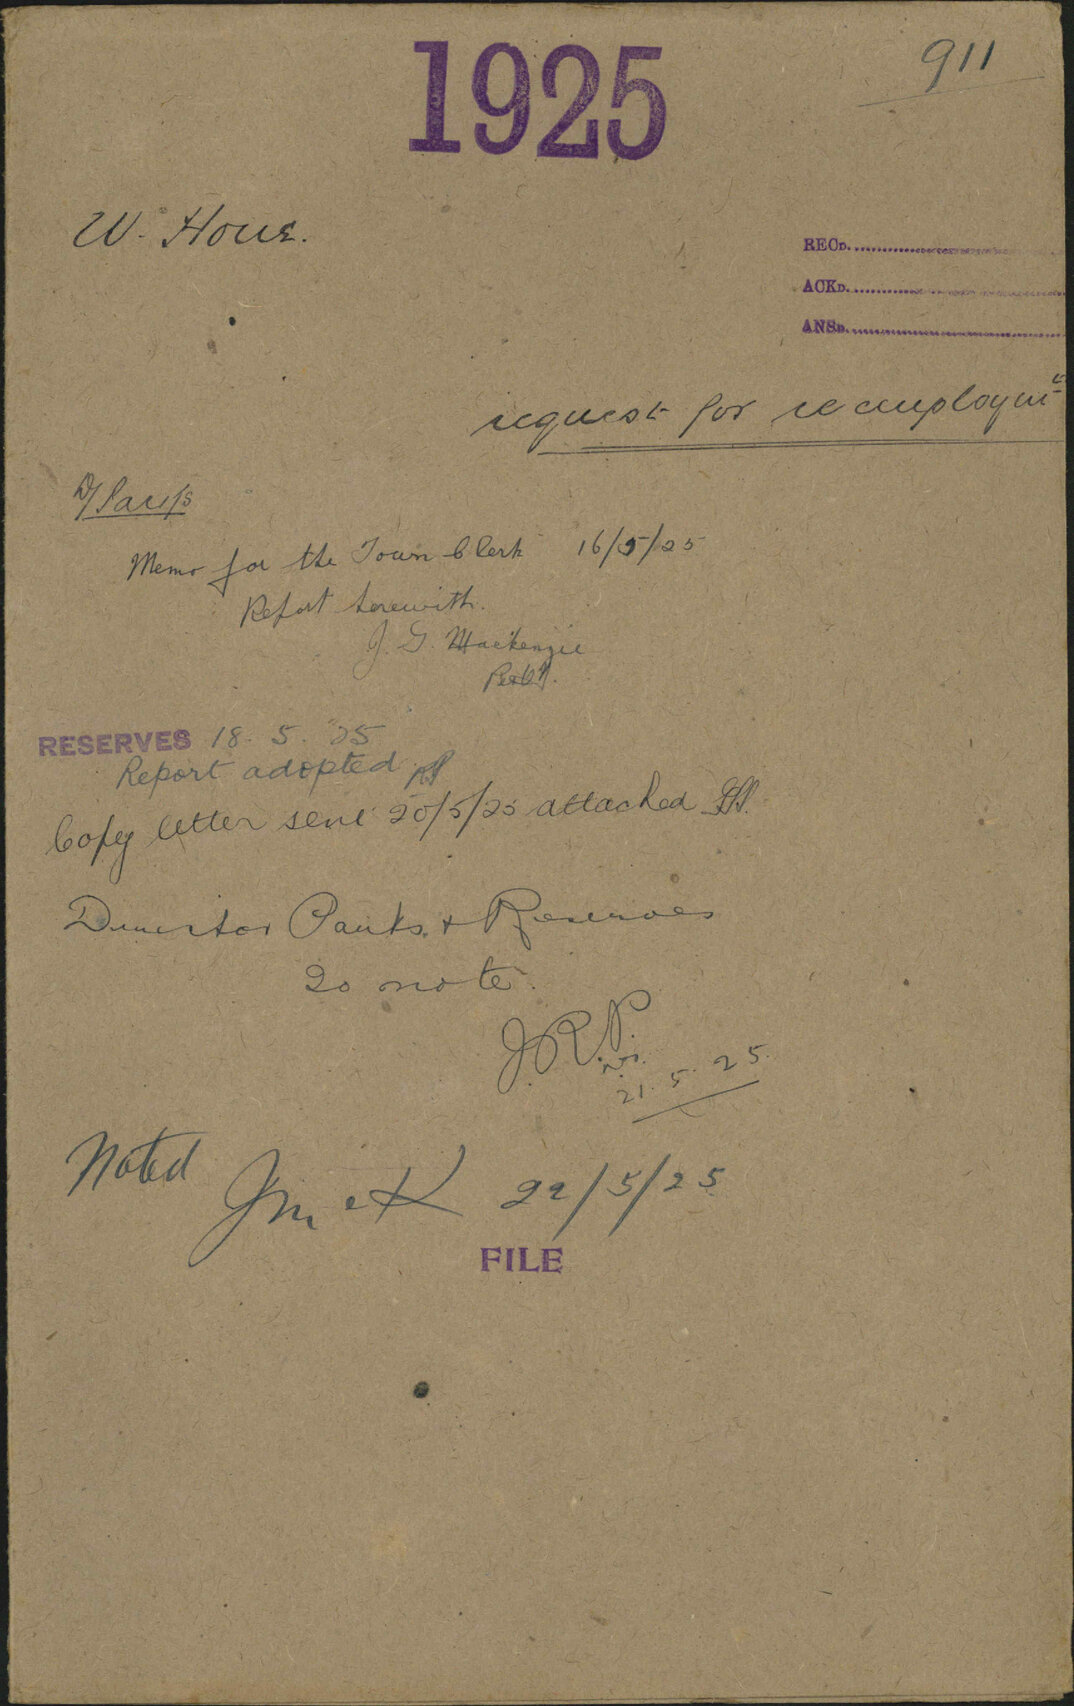 1925
911
W. Howe.
RECD.
ACKD.
ANSD.
request for reemploymt
D/Parks
Memo for the Town Clerk 16/5/25
Report herewith.
J. G. Mackenzie
RESERVES 18. 5. 25
Report adopted
Copy letter sent 20/5/25 attached
Director Parks & Reserves
To note.
J.R.P.
21. 5. 25.
Noted JMcK 22/5/25
FILE